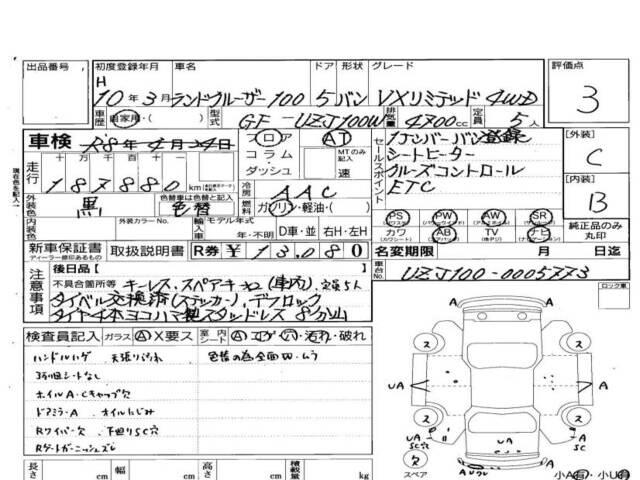 出品番号 初度登録年月 車名 ドア 形状 グレード 評価点
H
10年3月 ランドクルーザー100 5 バン VXリミテッド 4WD 3
車歴 自家用・( ) 型式 GF-UZJ100W 排気量 4700cc 定員 5人
車検 R8年4月24日 フロア AT
コラム MTのみ記入
ダッシュ 速
セールスポイント
1ナンバーバン登録
シートヒーター
クルーズコントロール
ETC
[外装] C
[内装] B
走行 十万 万 千 百 十 一
187880 km
冷房 AAC
外装色 黒 色替車は色替と記入 色替 燃料 ガソリン・軽油・( )
内装色 外装カラーNo. 輸入車 モデル年式 年・不明 D車・並 右H・左H
PS PW AW SR
カワ AB TV ナビ
純正品のみ丸印
新車保証書 取扱説明書 R券 ¥13,080
ディーラー捺印あるもの
名変期限 月 日迄
車台No. UZJ100-0005773
注意事項
後日品[ ]
不具合箇所等 キーレス、スペアキー (車内)、定員5人
タイベル交換済(ステッカー)、デフロック
タイヤ4本ヨコハマ製スタッドレス 8分山
ロック車
検査員記入 ガラス A X要ス 室内 シート A コゲ・穴・汚れ・破れ
ハンドルハゲ 天張り汚れ 色替の為全面
3列目シートなし
ホイルA・Cキャップ欠
ドアミラーA オイルにじみ
Rワイパー欠 下廻りSC穴
Rゲートガーニッシュズレ
A
ス ス
UA A
ス ス
UA SC穴 A SC
欠
スペア
現在色を記入→
長さ cm 幅 cm 高さ cm 積載量 kg
小A有・小U有